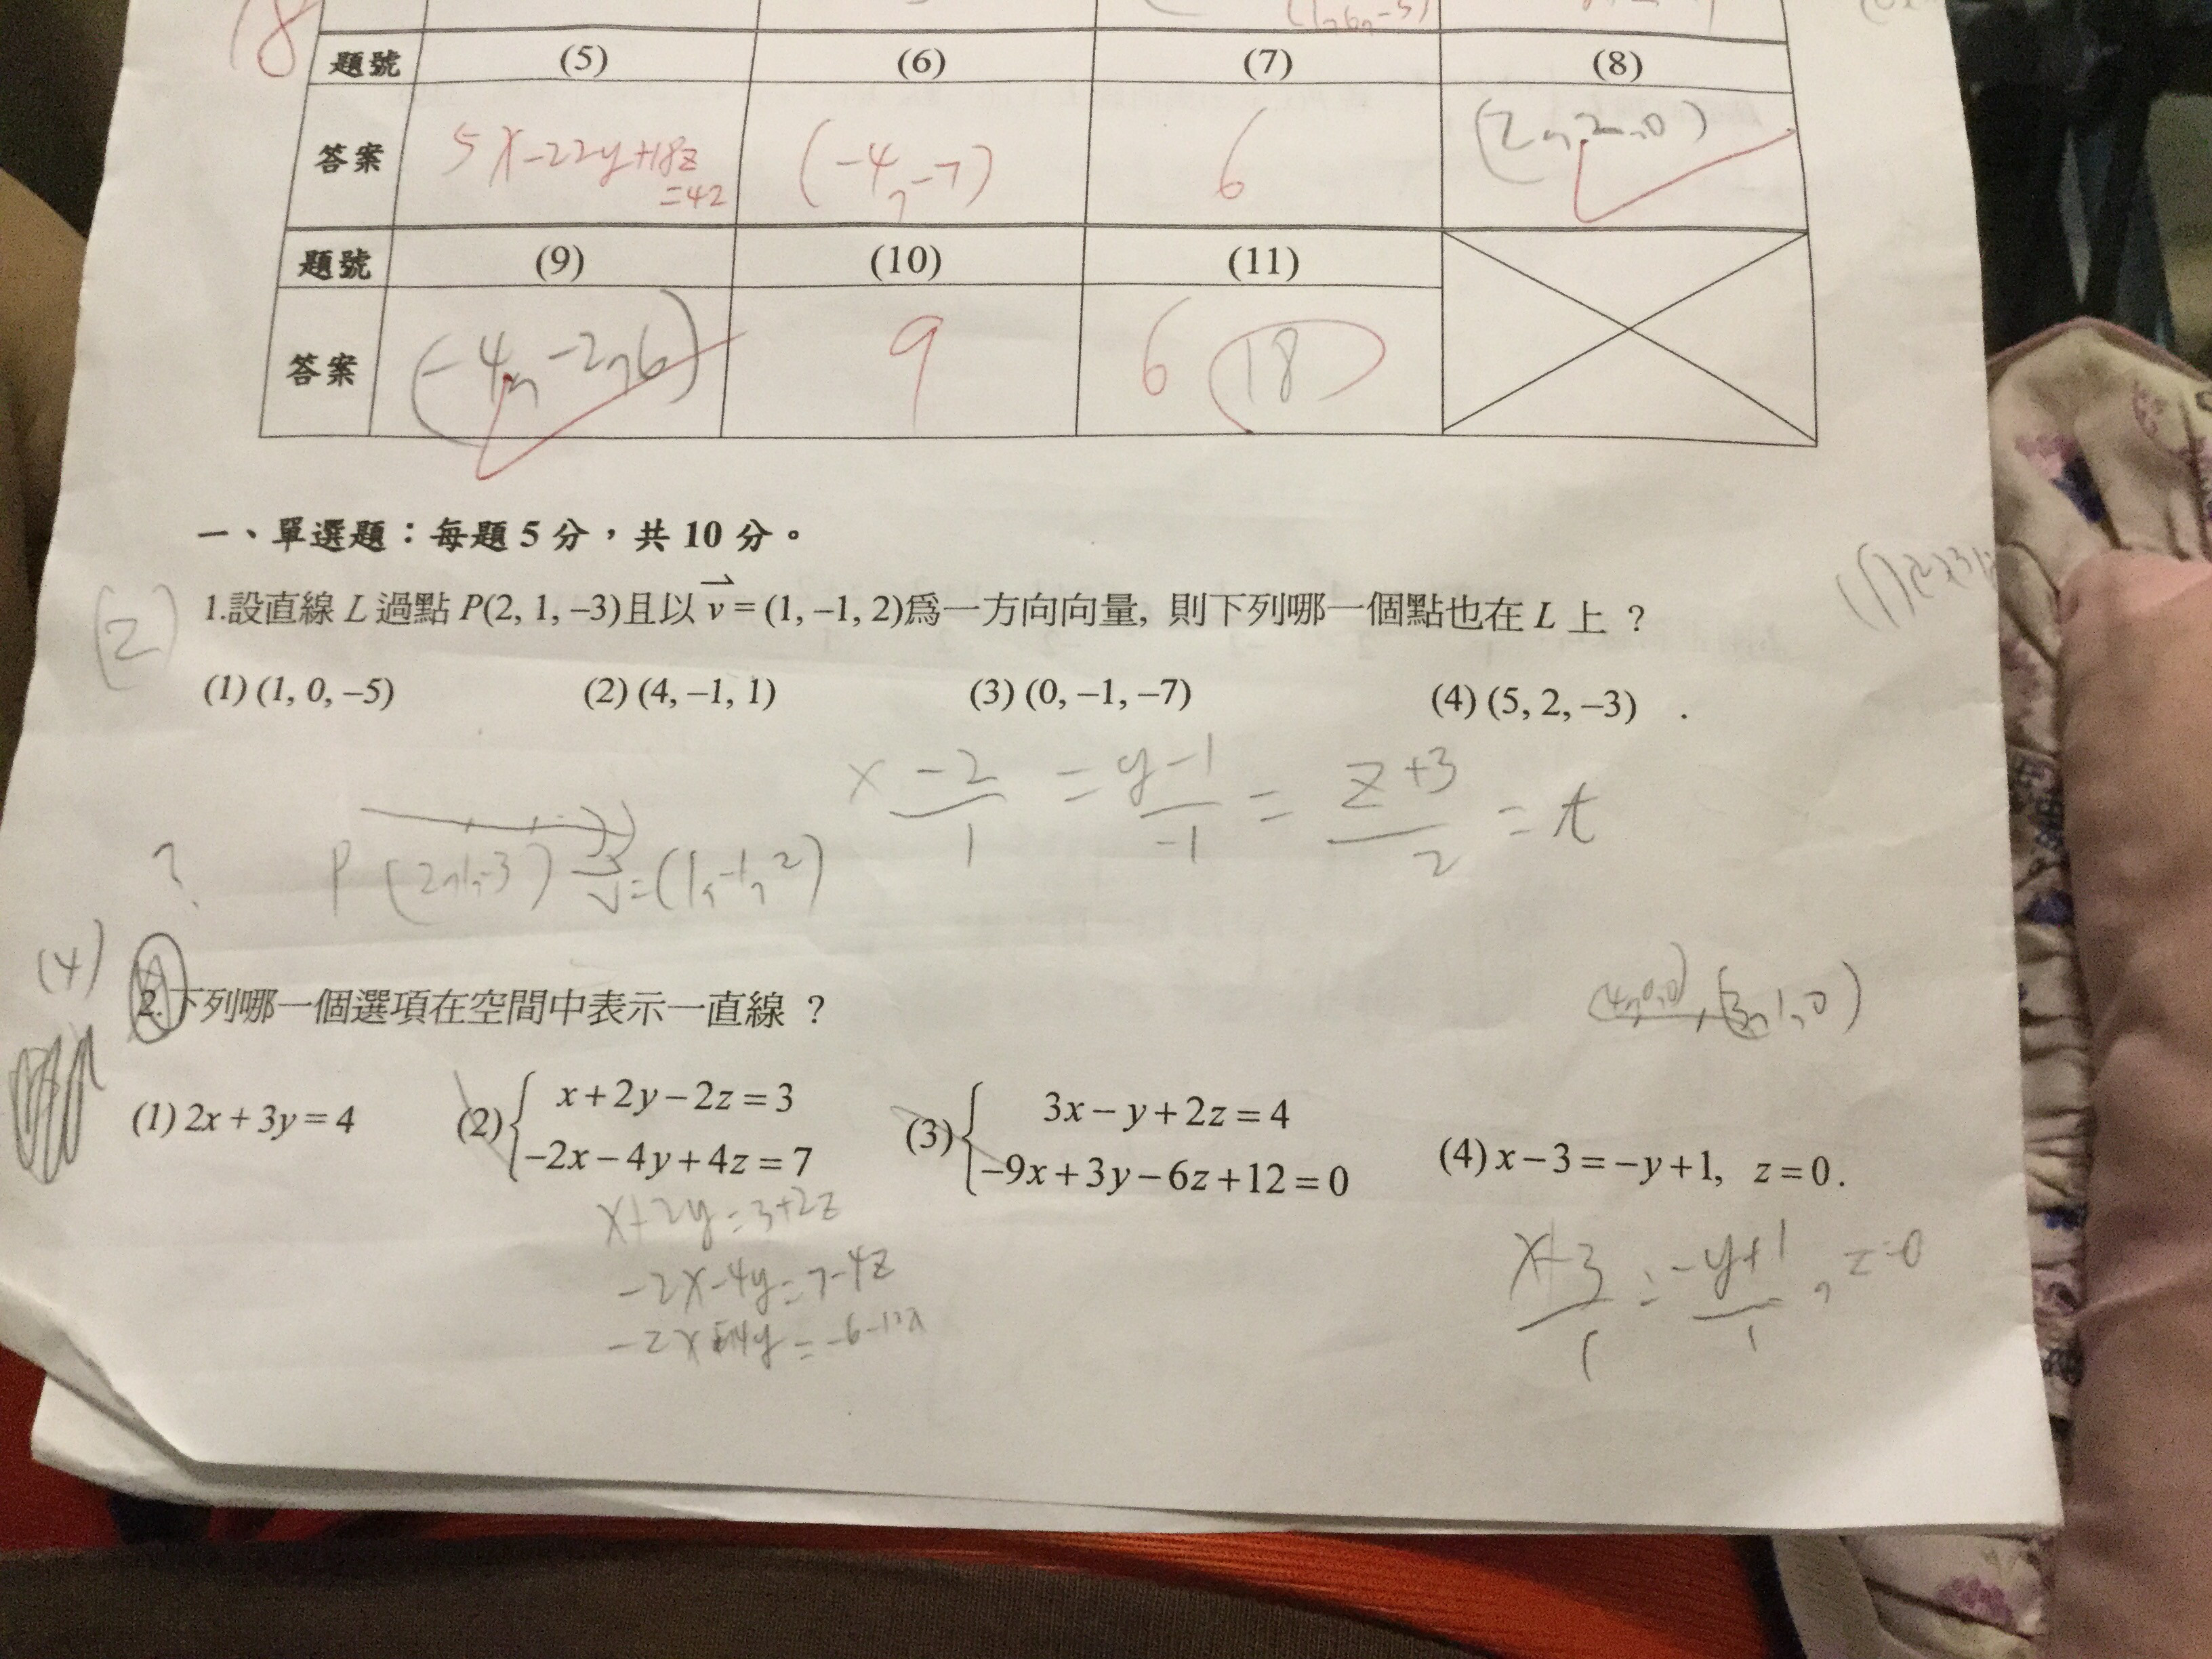 18
題號 (5) (6) (7) (8)
答案 5x-22y+18z=42 (-4,-7) 6 (2,2,0)
題號 (9) (10) (11)
答案 (-4,-2,6) 9 6 18
一、單選題：每題 5 分，共 10 分。
(2) 1.設直線 L 過點 P(2, 1, –3)且以 v = (1, –1, 2)為一方向向量, 則下列哪一個點也在 L 上 ?
(1) (1, 0, –5) (2) (4, –1, 1) (3) (0, –1, –7) (4) (5, 2, –3) .
x-2/1 = y-1/-1 = z+3/2 = t
? P (2,1,-3) v=(1,-1,2)
(4) 2.下列哪一個選項在空間中表示一直線 ?
(4,0,0), (3,1,0)
(1) 2x + 3y = 4 (2) { x+2y–2z=3 (3) { 3x–y+2z=4 (4) x–3=–y+1, z=0.
–2x–4y+4z=7 –9x+3y–6z+12=0
x+2y=3+2z
-2x-4y=7-4z
x-3/1 = -y+1/1 , z=0